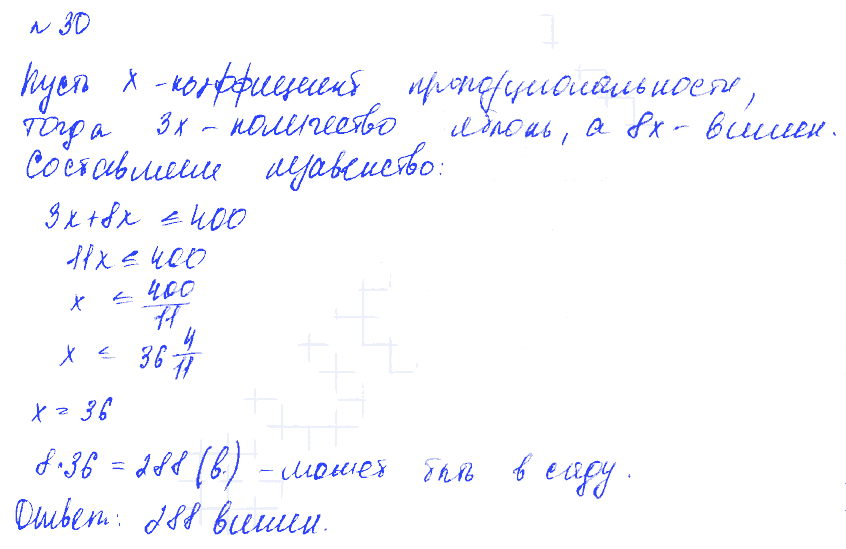 № 30
Пусть x - коэффициент пропорциональности,
тогда 3x - количество яблонь, а 8x - вишен.
Составляем неравенство:
3x + 8x ≤ 400
11x ≤ 400
x ≤ 400/11
x ≤ 36 4/11
x = 36
8·36 = 288 (в.) - может быть в саду.
Ответ: 288 вишен.